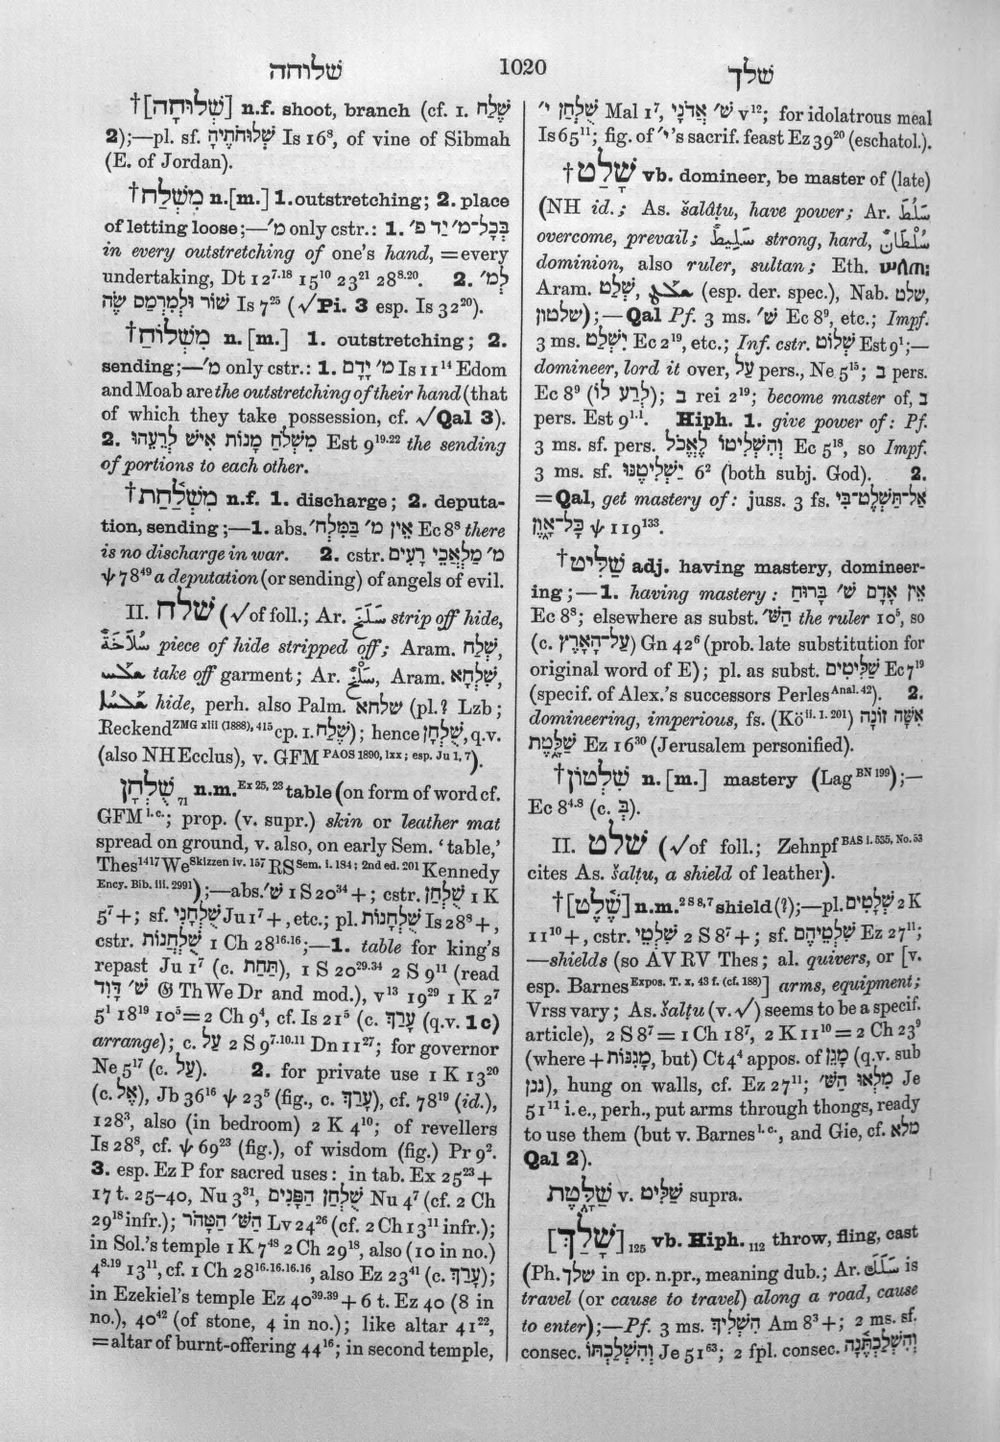 שלוחה 1020 שלך
†[שְׁלוּחָה] n.f. shoot, branch (cf. I. שָׁלַח
2);—pl. sf. שְׁלוּחֹתֶיהָ Is 16⁸, of vine of Sibmah
(E. of Jordan).
†מִשְׁלַח n.[m.] 1. outstretching; 2. place
of letting loose;—מ׳ only cstr.: 1. בְּכָל־מ׳ יַד פ׳
in every outstretching of one's hand, =every
undertaking, Dt 12⁷·¹⁸ 15¹⁰ 23²¹ 28⁸·²⁰. 2. לְמ׳
שׁוֹר וּלְמִרְמַס שֶׂה Is 7²⁵ (√Pi. 3 esp. Is 32²⁰).
†מִשְׁלוֹחַ n. [m.] 1. outstretching; 2.
sending;—מ׳ only cstr.: 1. מ׳ יָדָם Is 11¹⁴ Edom
and Moab are the outstretching of their hand (that
of which they take possession, cf. √Qal 3).
2. מִשְׁלֹחַ מָנוֹת אִישׁ לְרֵעֵהוּ Est 9¹⁹·²² the sending
of portions to each other.
†מִשְׁלַחַת n.f. 1. discharge; 2. deputa-
tion, sending;—1. abs. אֵין מ׳ בַּמִּלְח׳ Ec 8⁸ there
is no discharge in war. 2. cstr. מ׳ מַלְאֲכֵי רָעִים
ψ 78⁴⁹ a deputation (or sending) of angels of evil.
II. שלח (√of foll.; Ar. سَلَخَ strip off hide,
سُلَاخَة piece of hide stripped off; Aram. שְׁלַח,
take off garment; Ar. Aram. שִׁלְחָא,
hide, perh. also Palm. שלחא (pl.? Lzb;
Reckend ZMG xlii (1888), 415 cp. I. שֶׁלַח); hence שֻׁלְחָן, q.v.
(also NHEcclus), v. GFM PAOS 1890, lxx; esp. Ju 1, 7).
שֻׁלְחָן ₇₁ n.m. Ex 25, 23 table (on form of word cf.
GFM l.c.; prop. (v. supr.) skin or leather mat
spread on ground, v. also, on early Sem. 'table,'
Thes¹⁴¹⁷ We Skizzen iv. 157 RS Sem. i. 184; 2nd ed. 201 Kennedy
Ency. Bib. iii. 2991);—abs. שׁ׳ 1 S 20³⁴ +; cstr. שֻׁלְחַן 1 K
5⁷ +; sf. שֻׁלְחָנִי Ju 1⁷ +, etc.; pl. שֻׁלְחָנוֹת Is 28⁸ +,
cstr. שֻׁלְחֲנוֹת 1 Ch 28¹⁶·¹⁶;—1. table for king's
repast Ju 1⁷ (c. תַּחַת), 1 S 20²⁹·³⁴ 2 S 9¹¹ (read
שׁ׳ דָּוִד 𝔊 Th We Dr and mod.), v¹³ 19²⁹ 1 K 2⁷
5¹ 18¹⁹ 10⁵ = 2 Ch 9⁴, cf. Is 21⁵ (c. עָרַךְ (q.v. 1 c)
arrange); c. עַל 2 S 9⁷·¹⁰·¹¹ Dn 11²⁷; for governor
Ne 5¹⁷ (c. עַל). 2. for private use 1 K 13²⁰
(c. אֶל), Jb 36¹⁶ ψ 23⁵ (fig., c. עָרַךְ), cf. 78¹⁹ (id.),
128³, also (in bedroom) 2 K 4¹⁰; of revellers
Is 28⁸, cf. ψ 69²³ (fig.), of wisdom (fig.) Pr 9².
3. esp. Ez P for sacred uses: in tab. Ex 25²³ +
17 t. 25–40, Nu 3³¹, שֻׁלְחַן הַפָּנִים Nu 4⁷ (cf. 2 Ch
29¹⁸ infr.); הַשּׁ׳ הַטָּהֹר Lv 24²⁶ (cf. 2 Ch 13¹¹ infr.);
in Sol.'s temple 1 K 7⁴⁸ 2 Ch 29¹⁸, also (10 in no.)
4⁸·¹⁹ 13¹¹, cf. 1 Ch 28¹⁶·¹⁶·¹⁶·¹⁶, also Ez 23⁴¹ (c. עָרַךְ);
in Ezekiel's temple Ez 40³⁹·³⁹ + 6 t. Ez 40 (8 in
no.), 40⁴² (of stone, 4 in no.); like altar 41²²,
=altar of burnt-offering 44¹⁶; in second temple,
שֻׁלְחַן י׳ Mal 1⁷, שׁ׳ אֲדֹנָי v¹²; for idolatrous meal
Is 65¹¹; fig. of י׳'s sacrif. feast Ez 39²⁰ (eschatol.).
†שָׁלַט vb. domineer, be master of (late)
(NH id.; As. šalâṭu, have power; Ar. سَلُطَ
overcome, prevail; سَلِيطٌ strong, hard, سُلْطَانٌ
dominion, also ruler, sultan; Eth. ሠለጠ:
Aram. שְׁלַט, (esp. der. spec.), Nab. שלט,
שלטון);—Qal Pf. 3 ms. שׁ׳ Ec 8⁹, etc.; Impf.
3 ms. יִשְׁלַט Ec 2¹⁹, etc.; Inf. cstr. שְׁלוֹט Est 9¹;—
domineer, lord it over, עַל pers., Ne 5¹⁵; ב pers.
Ec 8⁹ (לְרַע לוֹ); ב rei 2¹⁹; become master of, ב
pers. Est 9¹·¹. Hiph. 1. give power of: Pf.
3 ms. sf. pers. וְהִשְׁלִיטוֹ לֶאֱכֹל Ec 5¹⁸, so Impf.
3 ms. sf. יַשְׁלִיטֶנּוּ 6² (both subj. God). 2.
=Qal, get mastery of: juss. 3 fs. אַל־תַּשְׁלֶט־בִּי
כָּל־אָוֶן ψ 119¹³³.
†שַׁלִּיט adj. having mastery, domineer-
ing;—1. having mastery: אֵין אָדָם שׁ׳ בָּרוּחַ
Ec 8⁸; elsewhere as subst. הַשּׁ׳ the ruler 10⁵, so
(c. עַל־הָאָרֶץ) Gn 42⁶ (prob. late substitution for
original word of E); pl. as subst. שַׁלִּיטִים Ec 7¹⁹
(specif. of Alex.'s successors Perles Anal. 42). 2.
domineering, imperious, fs. (Kö ii. 1. 201) אִשָּׁה זוֹנָה
שַׁלֶּטֶת Ez 16³⁰ (Jerusalem personified).
†שִׁלְטוֹן n. [m.] mastery (Lag BN 199);—
Ec 8⁴·⁸ (c. בְּ).
II. שלט (√of foll.; Zehnpf BAS i. 535, No. 53
cites As. šalṭu, a shield of leather).
†[שֶׁלֶט] n.m. 2 S 8, 7 shield (?);—pl. שְׁלָטִים 2 K
11¹⁰ +, cstr. שִׁלְטֵי 2 S 8⁷ +; sf. שִׁלְטֵיהֶם Ez 27¹¹;
—shields (so AV RV Thes; al. quivers, or [v.
esp. Barnes Expos. T. x, 43 f. (cf. 188)] arms, equipment;
Vrss vary; As. šalṭu (v. √) seems to be a specif.
article), 2 S 8⁷ = 1 Ch 18⁷, 2 K 11¹⁰ = 2 Ch 23⁹
(where + מָגִנּוֹת, but) Ct 4⁴ appos. of מָגֵן (q.v. sub
גנן), hung on walls, cf. Ez 27¹¹; מִלְאוּ הַשּׁ׳ Je
51¹¹ i.e., perh., put arms through thongs, ready
to use them (but v. Barnes l.c., and Gie, cf. מלא
Qal 2).
שַׁלֶּטֶת v. שַׁלִּיט supra.
[שָׁלַךְ] ₁₂₅ vb. Hiph. ₁₁₂ throw, fling, cast
(Ph. שלך in cp. n.pr., meaning dub.; Ar. سَلَكَ is
travel (or cause to travel) along a road, cause
to enter);—Pf. 3 ms. הִשְׁלִיךְ Am 8³ +; 2 ms. sf.
consec. וְהִשְׁלַכְתּוֹ Je 51⁶³; 2 fpl. consec. וְהִשְׁלַכְתֶּנָה